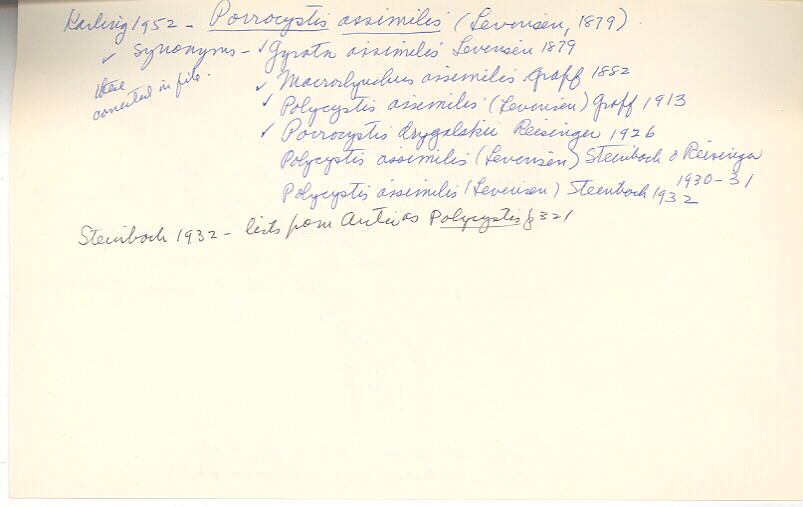 Karling 1952 - Porrocystis assimilis (Levensen, 1879)
✓ synonyms - ✓ Gyrata assimilis Levensen 1879
these corrected in file.
✓ Macrorhynchus assimilis Graff 1882
✓ Polycystis assimilis (Levensen) Graff 1913
✓ Porrocystis drygalskii Reisinger 1926
Polycystis assimilis (Levensen) Steinboch & Reisinger 1930-31
Polycystis assimilis (Levensen) Steinboch 1932
Steinboch 1932 - lists from Arctic as Polycystis p 321